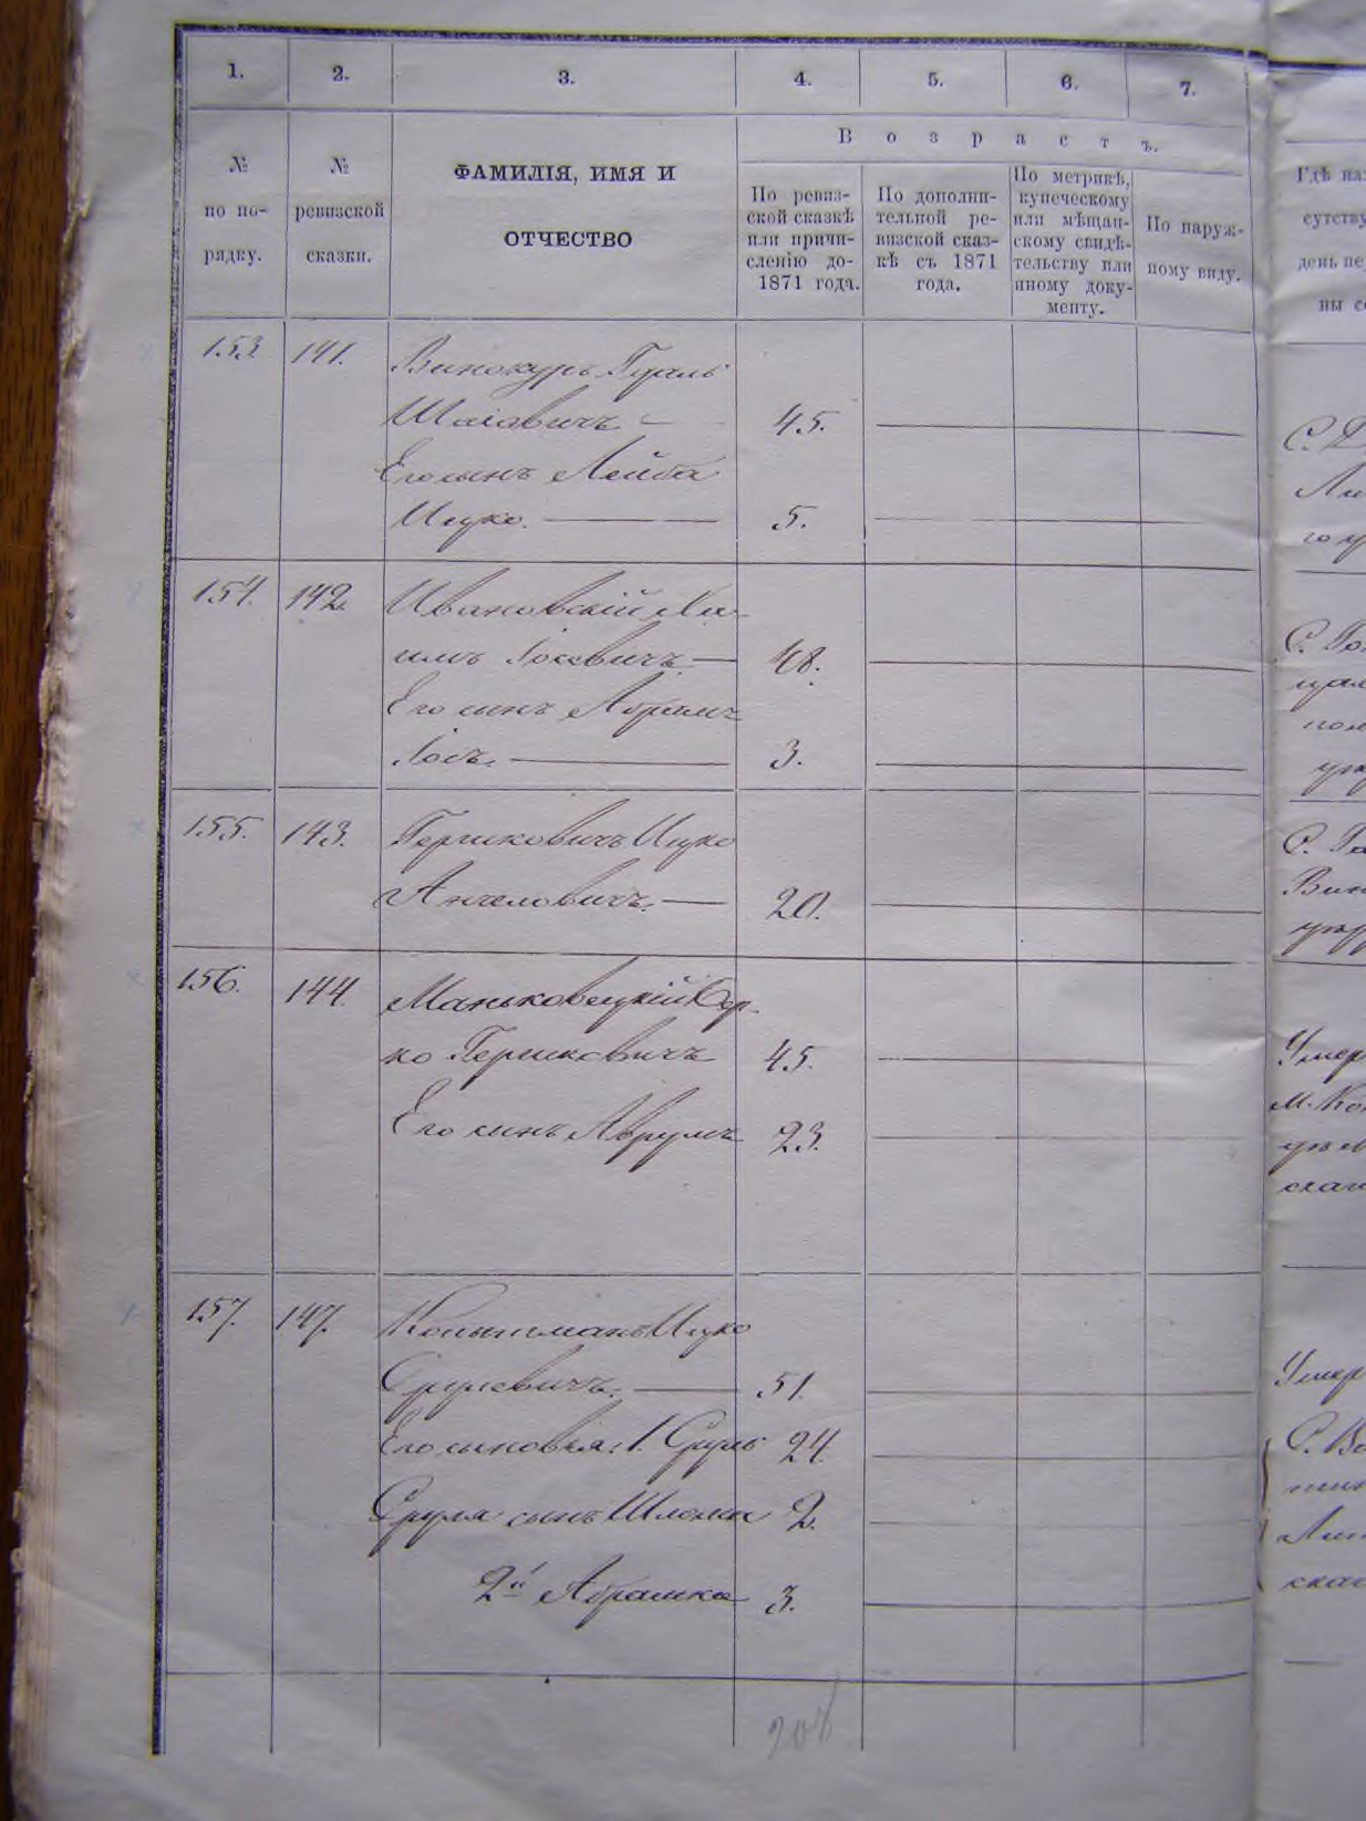 1. 2. 3. 4. 5. 6. 7.
№ по по-рядку.
№ ревизской сказки.
ФАМИЛІЯ, ИМЯ И
ОТЧЕСТВО
Возрастъ.
По ревиз-
ской сказкѣ
или причи-
сленію до-
1871 года.
По дополни-
тельной ре-
визской сказ-
кѣ съ 1871
года.
По метрикѣ,
купеческому
или мѣщан-
скому свидѣ-
тельству или
иному доку-
менту.
По наруж-
ному виду.
153 141. Винокуръ
Шаіовичъ — 45.
Его сынъ Лейба
Ицко. — 5.
154. 142. Ивановскій Ха-
имъ Іосевичъ — 48.
Его сынъ Абрамъ
Іось. — 3.
155. 143. Гершковичъ Ицко
Анчеловичъ. — 20.
156. 144. Маньковецкій Бер-
ко Гершковичъ 45.
Его сынъ Аврумъ 23.
157. 147. Ицко
Срулевичъ. — 51.
Его сыновья: 1. Сруль 24.
Сруля сынъ Шлёма 2.
2й Абрамко 3.
Гдѣ на
сутству
день пе
ны с
С. Д
Ли
го у
С. Го
цал
С. Га
Вин
Умер
М. Ко
скаг
Умер
С. Во
скаг